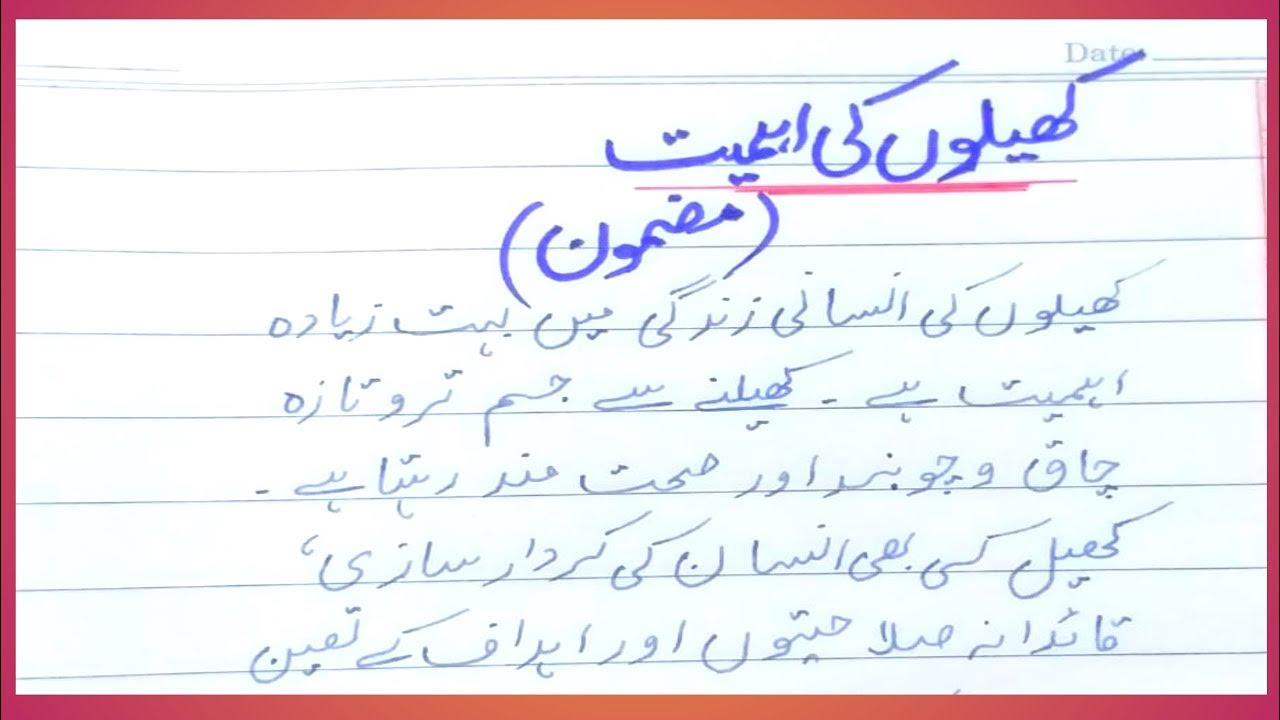 Date:
کھیلوں کی اہمیت
(مضمون)
کھیلوں کی انسانی زندگی میں بہت زیادہ
اہمیت ہے ۔ کھیلنے سے جسم تروتازہ
چاق و چوبند اور صحت مند رہتا ہے ۔
کھیل کسی بھی انسان کی کردار سازی،
قائدانہ صلاحیتوں اور اہداف کے تعین